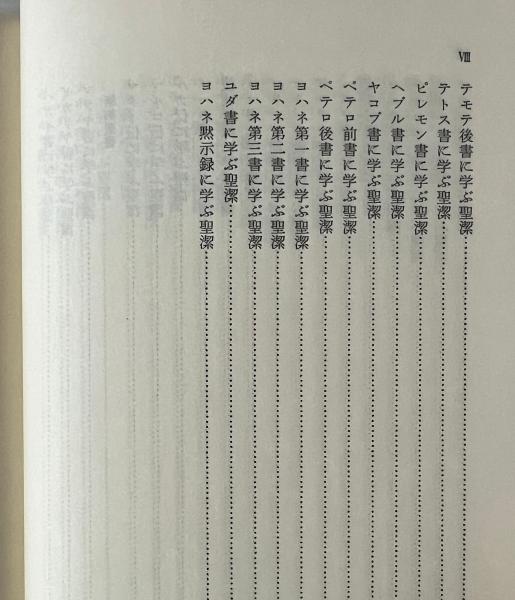 VIII
テモテ後書に学ぶ聖潔
テトス書に学ぶ聖潔
ピレモン書に学ぶ聖潔
ヘブル書に学ぶ聖潔
ヤコブ書に学ぶ聖潔
ペテロ前書に学ぶ聖潔
ペテロ後書に学ぶ聖潔
ヨハネ第一書に学ぶ聖潔
ヨハネ第二書に学ぶ聖潔
ヨハネ第三書に学ぶ聖潔
ユダ書に学ぶ聖潔
ヨハネ黙示録に学ぶ聖潔